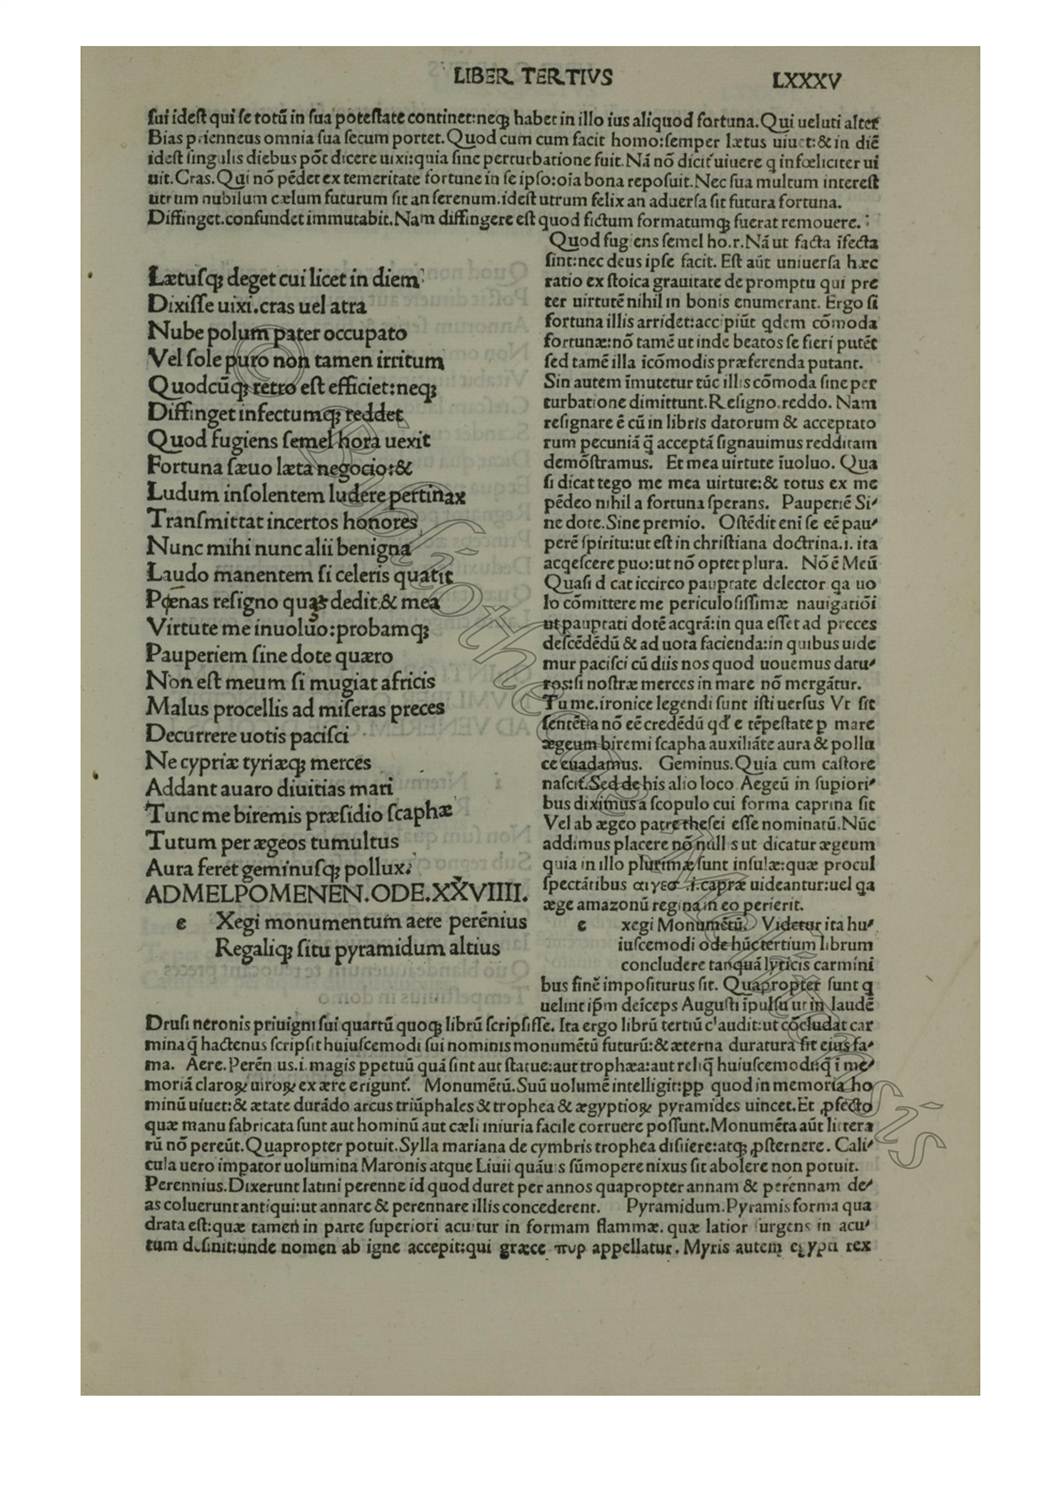 LIBER TERTIVS
LXXXV
sui idest qui se totū in sua potestate continet:neq; habet in illo ius aliquod fortuna.Qui ueluti alter
Bias prienneus omnia sua secum portet.Quod cum cum facit homo:semper lætus uiuet:& in diē
idest singulis diebus pōt dicere uixi:quia sine perturbatione fuit.Nā nō dicit uiuere q infœliciter ui
uit.Cras.Qui nō pēdet ex temeritate fortune in se ipso:oīa bona reposuit.Nec sua multum interest
utrum nubilum cælum futurum sit an serenum.idest utrum felix an aduersa sit futura fortuna.
Diffinget.confundet immutabit.Nam diffingere est quod fictum formatumq; fuerat remouere.
Lætusq; deget cui licet in diem
Dixisse uixi.cras uel atra
Nube polum pater occupato
Vel sole puro non tamen irritum
Quodcūq; retro est efficiet:neq;
Diffinget infectumq; reddet
Quod fugiens semel hora uexit
Fortuna sæuo læta negocio:&
Ludum insolentem ludere pertinax
Transmittat incertos honores
Nunc mihi nunc alii benigna
Laudo manentem si celeris quatit
Pœnas resigno quas dedit:& mea
Virtute me inuoluo:probamq;
Pauperiem sine dote quæro
Non est meum si mugiat africis
Malus procellis ad miseras preces
Decurrere uotis pacisci
Ne cypriæ tyriæq; merces
Addant auaro diuitias mari
Tunc me biremis præsidio scaphæ
Tutum per ægeos tumultus
Aura feret geminusq; pollux.
AD MELPOMENEN.ODE.XXVIIII.
e Xegi monumentum aere perēnius
Regaliq; situ pyramidum altius
Quod fugiens semel ho.r.Nā ut facta īfecta
sint:nec deus ipse facit. Est aūt uniuersa hæc
ratio ex stoica grauitate de promptu qui pre
ter uirtutē nihil in bonis enumerant. Ergo si
fortuna illis arridet:accipiūt qdem cōmoda
fortunæ:nō tamē ut inde beatos se fieri putēt
sed tamē illa īcōmodis præferenda putant.
Sin autem īmutetur tūc illis cōmoda sine per
turbatione dimittunt.Resigno.reddo. Nam
resignare ē cū in libris datorum & acceptato
rum pecuniā q̄ acceptā signauimus redditam
demōstramus. Et mea uirtute īuoluo. Qua
si dicat tego me mea uirtute:& totus ex me
pēdeo nihil a fortuna sperans. Pauperiē Si
ne dote.Sine premio. Ostēdit eni se eē pau
perē spiritu:ut est in christiana doctrina.i. ita
acqescere puo:ut nō optet plura. Nō ē Meū
Quasi dicat iccirco pauprate delector qa uo
lo cōmittere me periculosissimæ nauigatiōi
ut pauprati dotē acqrā:in qua esset ad preces
descēdēdū & ad uota facienda:in quibus uide
mur pacisci cū diis nos quod uouemus datu
ros:si nostræ merces in mare nō mergātur.
Tu me.ironice legendi sunt isti uersus Vt sit
sentētia nō eē credēdū qd' e tēpestate p mare
ægeum biremi scapha auxiliāte aura & pollu
ce euadamus. Geminus.Quia cum castore
nascit.Sed de his alio loco Aegeū in supiori
bus diximus a scopulo cui forma caprina sit
Vel ab ægeo patre thesei esse nominatū.Nūc
addimus placere nō nullis ut dicatur ægeum
quia in illo plurimæ sunt insulæ:quæ procul
spectātibus αιγεσ .i.capræ uideantur:uel qa
æge amazonū regina in eo perierit.
e xegi Monumētū. Videtur ita hu
iuscemodi ode hūc tertium librum
concludere tanquā lyricis carmini
bus finē impositurus sit. Quapropter sunt q
uelint ipm deīceps Augusti īpulsu ut in laudē
Drusi neronis priuigni sui quartū quoq; librū scripsisse. Ita ergo librū tertiū claudit:ut cōcludat car
mina q̄ hactenus scripsit huiuscemodi sui nominis monumētū futurū:& æterna duratura sit ejus fa
ma. Aere.Perēnius.i.magis ppetuū quā sint aut statue:aut trophæa:aut reliq̄ huiuscemodi:q̄ ī me
moriā claroꝝ uiroꝝ ex ære erigunt'. Monumētū.Suū uolumē intelligit:pp quod in memoria ho
minū uiuet:& ætate durādo arcus triūphales & trophea & ægyptioꝝ pyramides uincet.Et pfecto
quæ manu fabricata sunt aut hominū aut cæli iniuria facile corruere possunt.Monumēta aūt littera
rū nō pereūt.Quapropter potuit.Sylla mariana de cymbris trophea disiicere:atq; psternere. Cali
cula uero impator uolumina Maronis atque Liuii quāuis sūmopere nixus sit abolere non potuit.
Perennius.Dixerunt latini perenne id quod duret per annos quapropter annam & perennam de
as coluerunt antiqui:ut annare & perennare illis concederent. Pyramidum.Pyramis forma qua
drata est:quæ tamen in parte superiori acuitur in formam flammæ. quæ latior surgens in acu
tum desinit:unde nomen ab igne accepit:qui græce πυρ appellatur. Myris autem egypti rex
© Bibliotheca
sis